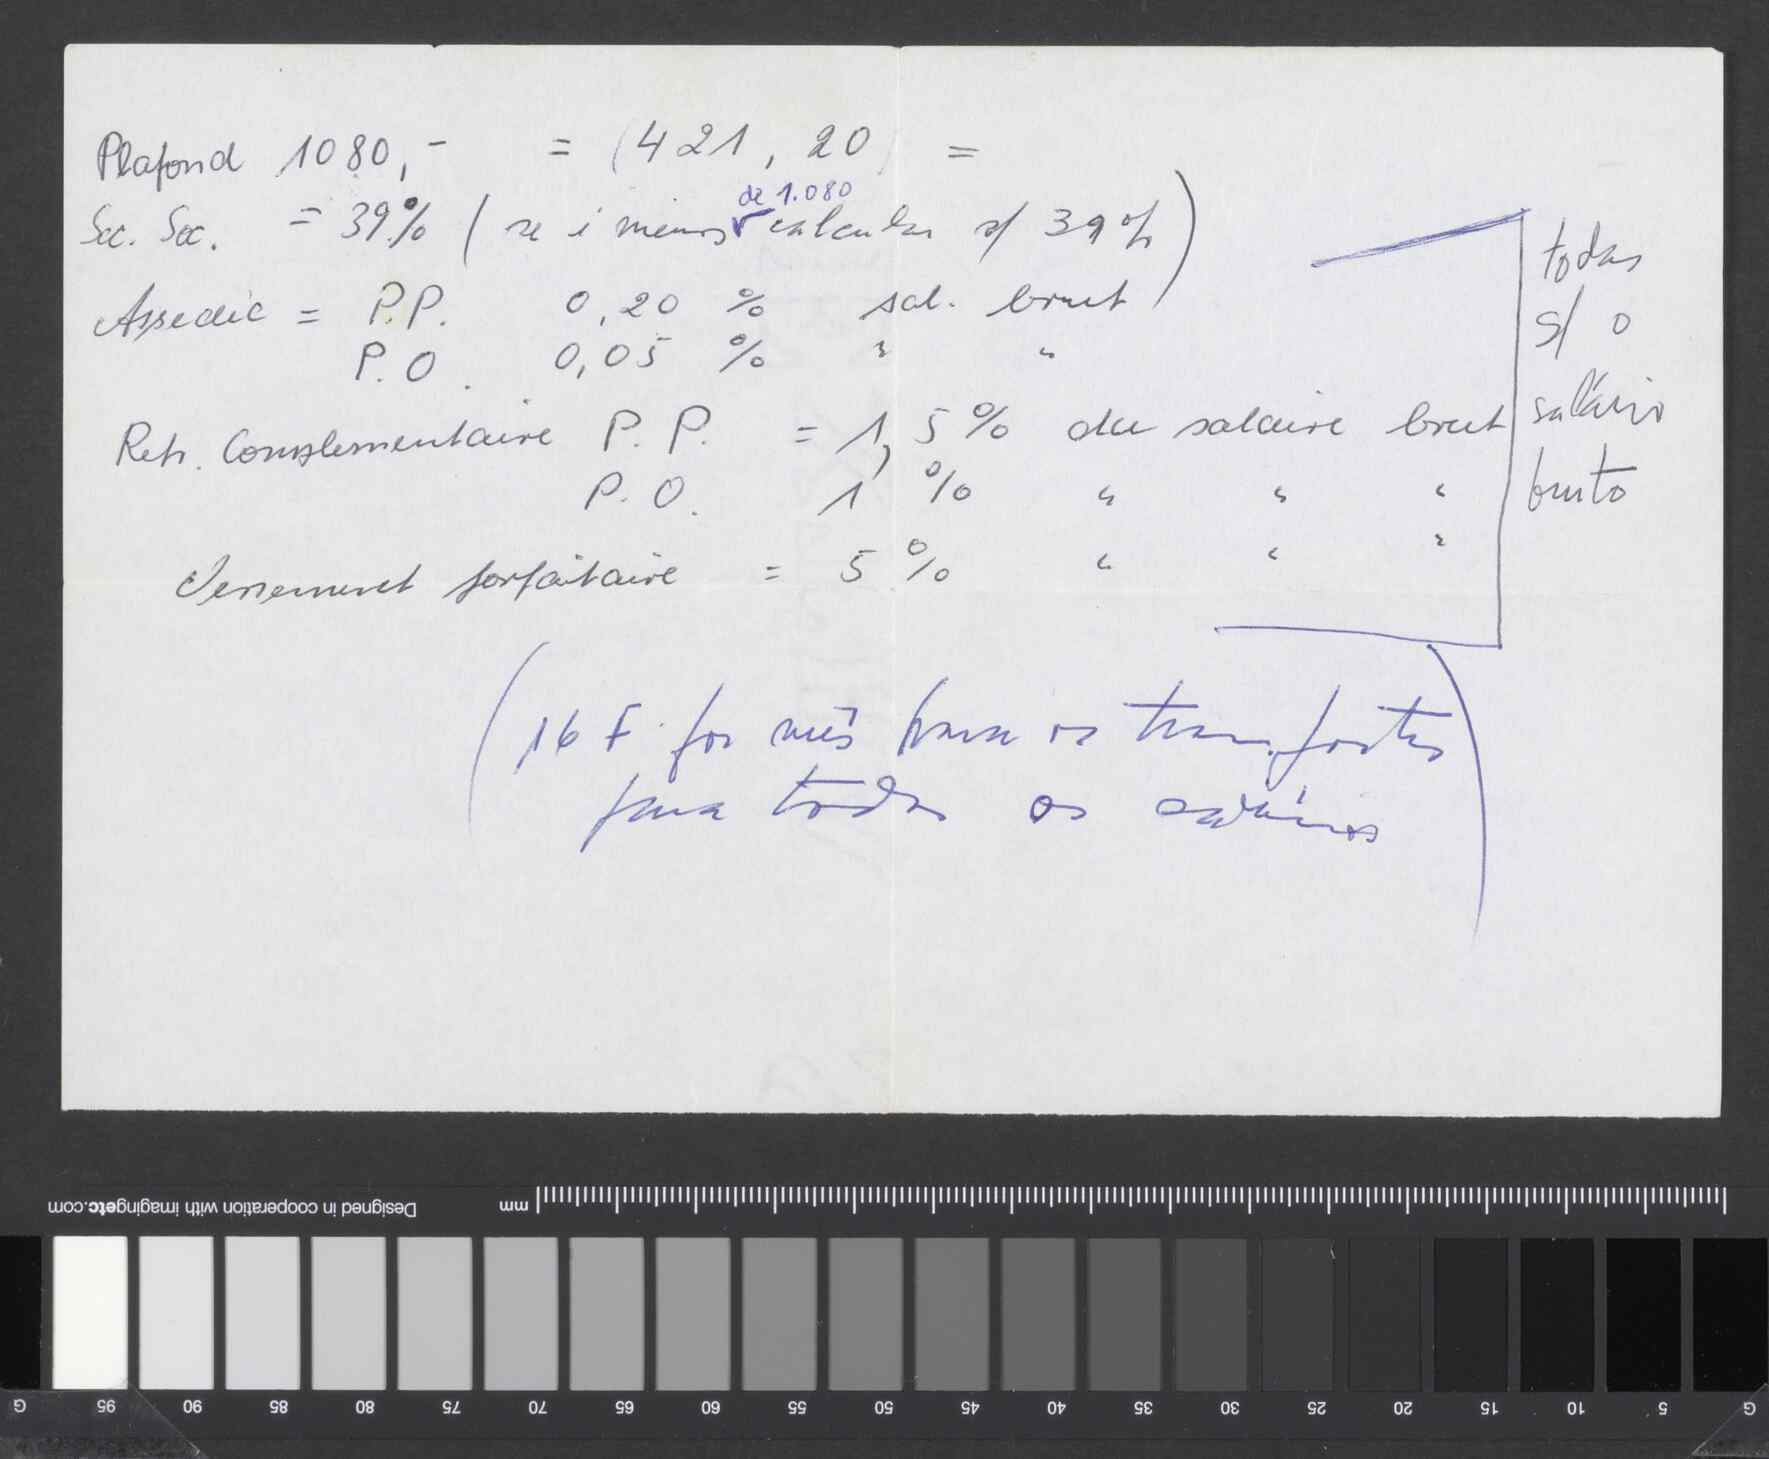 Plafond 1080,- = (421,20) =
de 1.080
Sec. Soc. = 39% (se é menos calcular s/ 39%)
Assedic = P.P. 0,20 % sal. brut
P.O. 0,05 % " "
Retr. Complementaire P.P. = 1,5% du salaire brut
P.O. 1 % " " "
Versement forfaitaire = 5 % " " "
todas
s/ o
salário
bruto
(16 F. por mês para os transportes
para todos os salários)
mm
Designed in cooperation with imagingetc.com
G 95 90 85 80 75 70 65 60 55 50 45 40 35 30 25 20 15 10 5 G